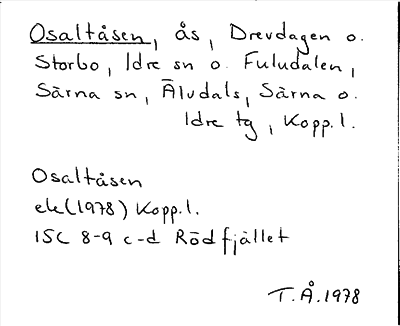 Osaltåsen, ås, Drevdagen o.
Storbo, Idre sn o. Fuludalen,
Särna sn, Älvdals, Särna o.
Idre tg, Kopp.l.
Osaltåsen
ek(1978) Kopp.l.
ISC 8-9 c-d Rödfjället
T.Å.1978